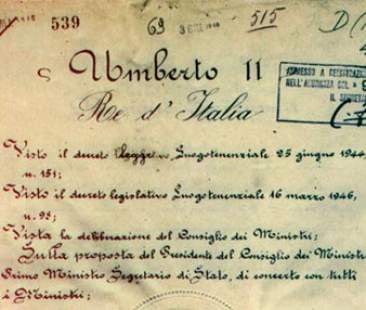 539 69 515
Umberto II
Re d'Italia
AMMESSO A
NELL'ADUNANZA DEL
IL
Visto il decreto Luogotenenziale 25 giugno 1944,
n. 151;
Visto il decreto legislativo Luogotenenziale 16 marzo 1946,
n. 98;
Vista la deliberazione del Consiglio dei Ministri;
Sulla proposta del Presidente del Consiglio dei Ministri
Primo Ministro Segretario di Stato, di concerto con tutti
i Ministri;